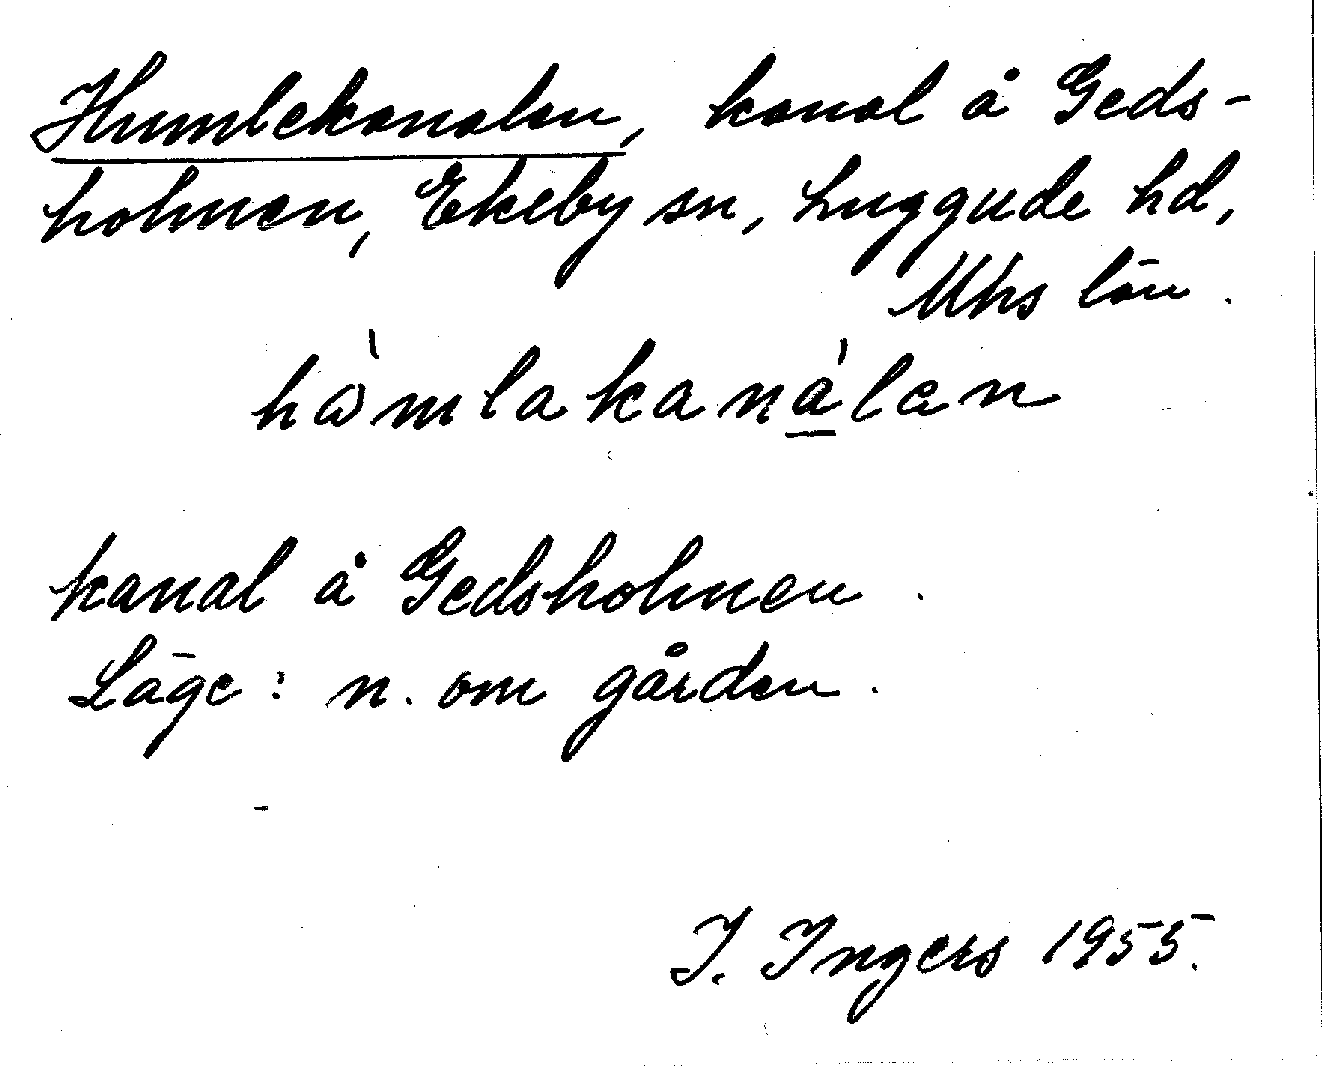 Humlekanalen, kanal å Geds-
holmen, Ekeby sn, Luggude hd,
Mhs län.
hò̇mlakanálen
kanal å Gedsholmen.
Läge: n. om gården.
I. Ingers 1955.